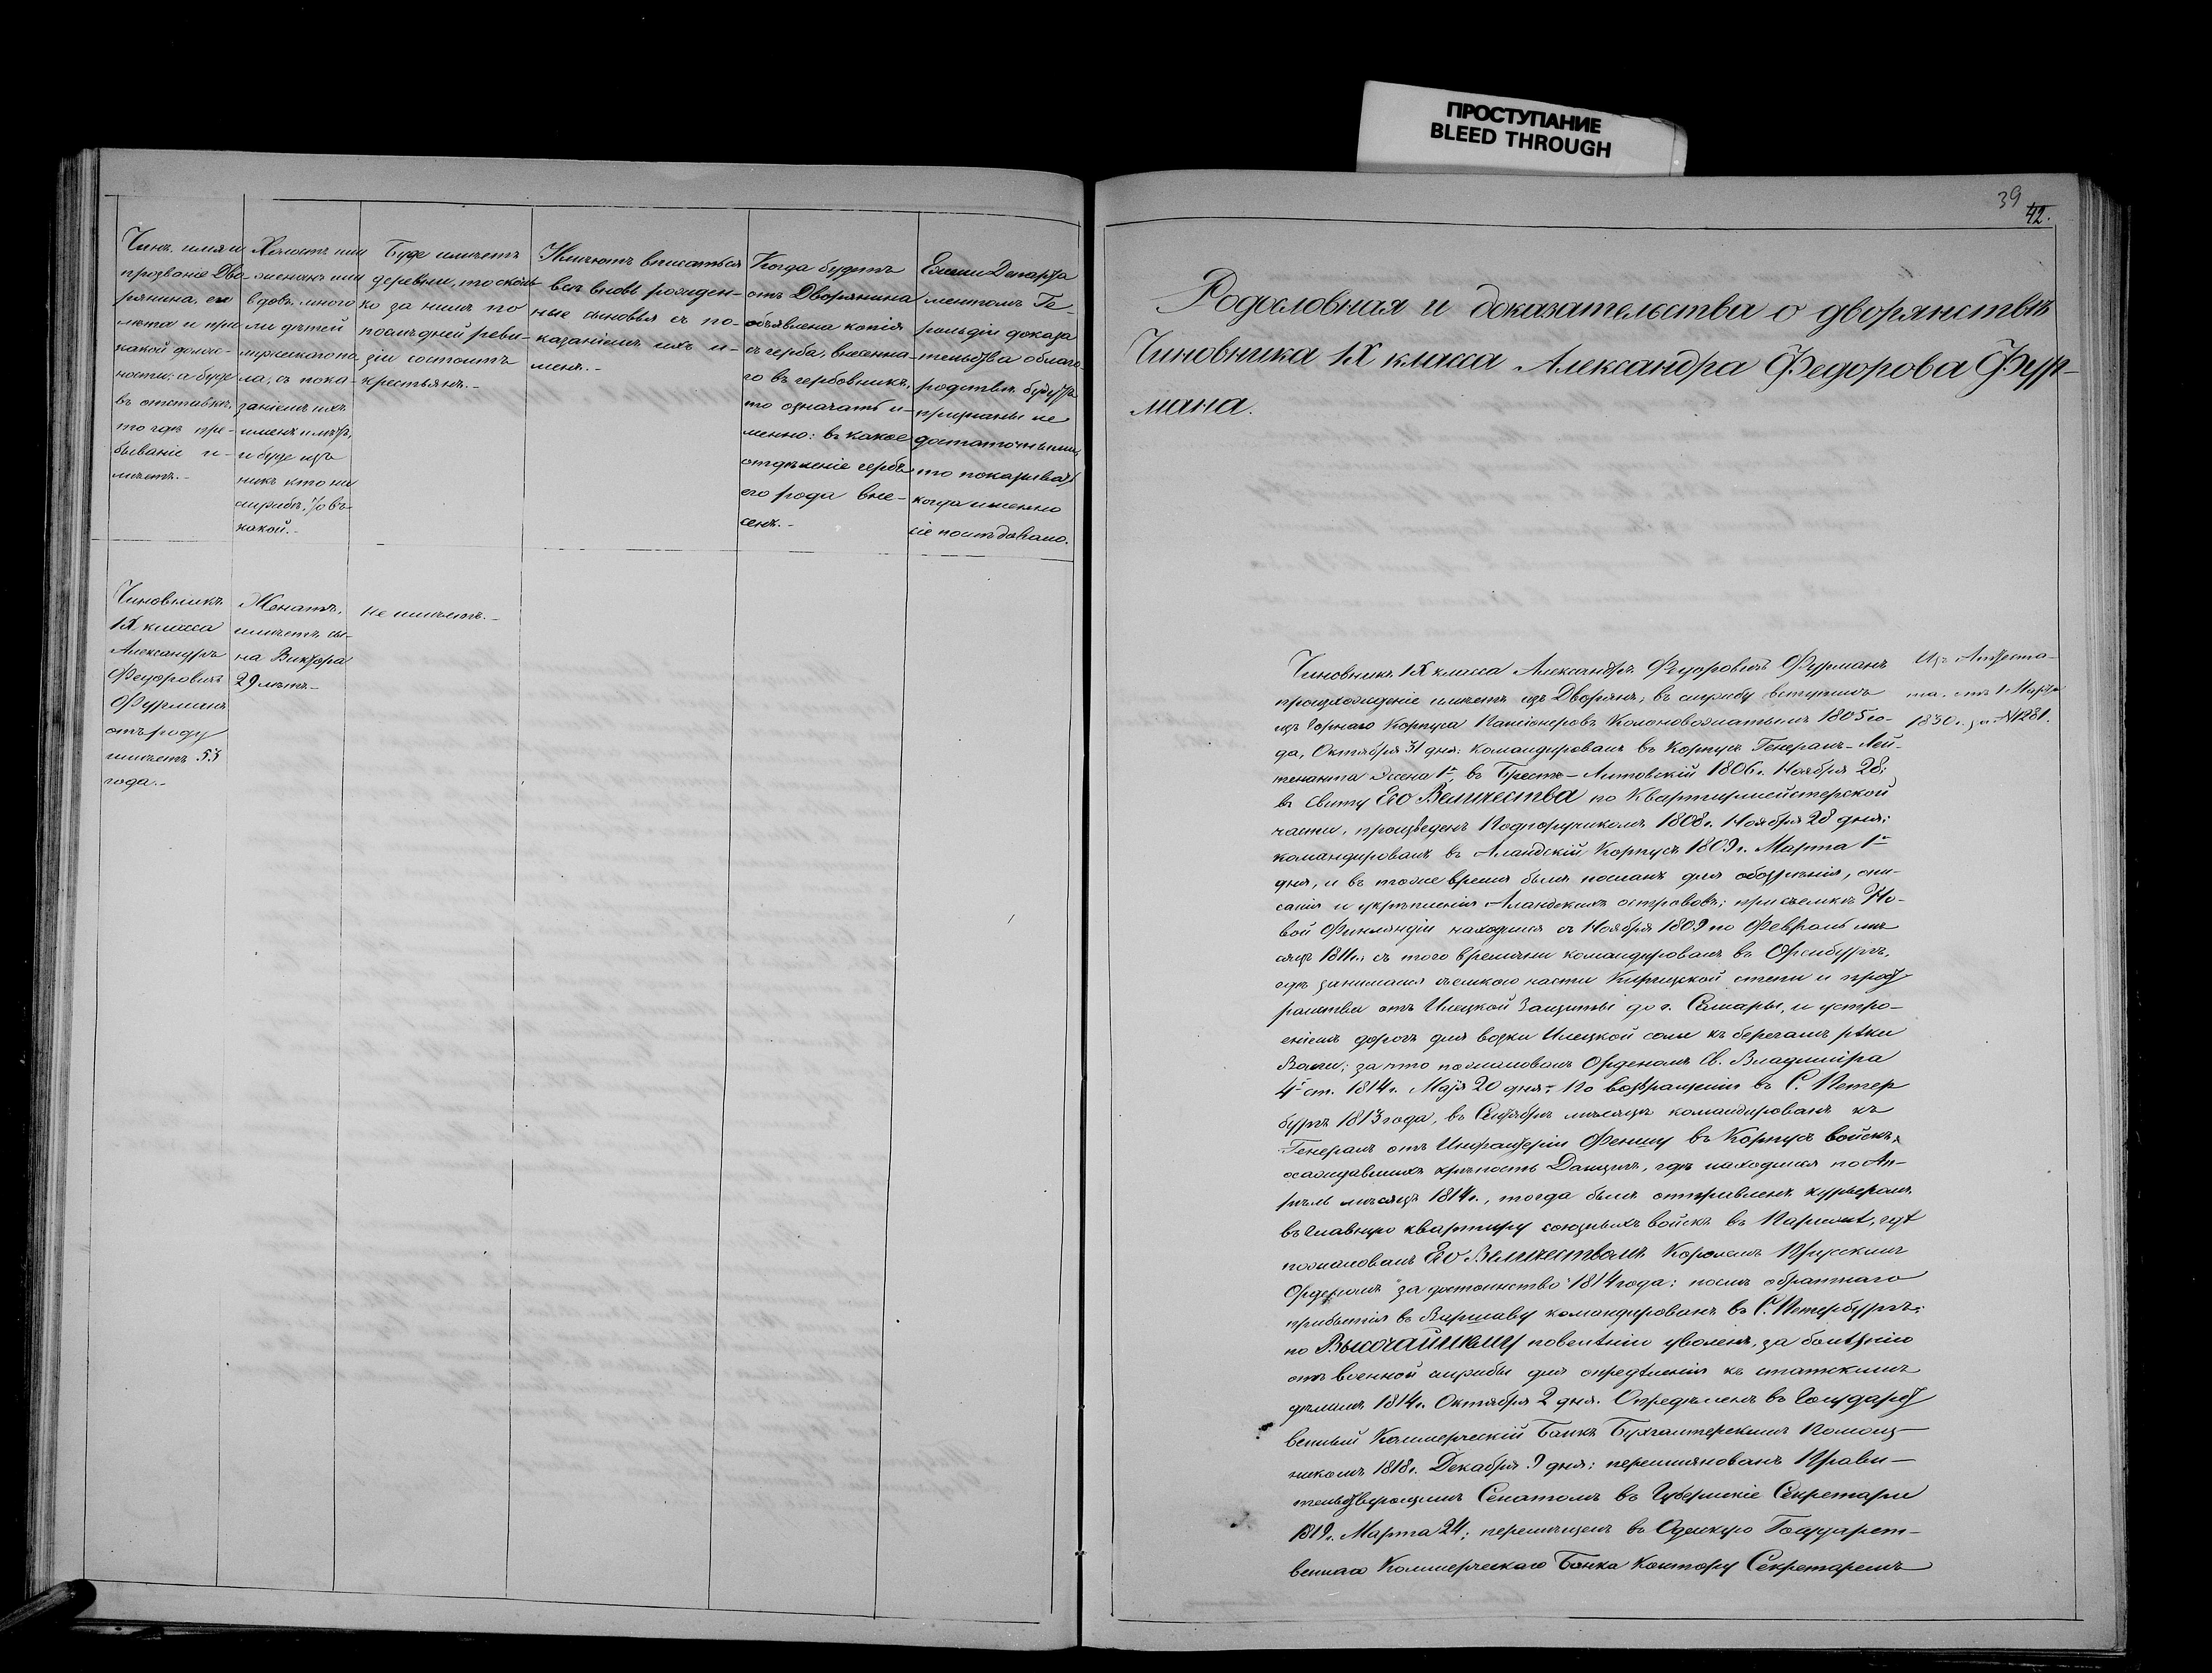 ПРОСТУПАНИЕ
BLEED THROUGH
Чинъ, имя и
прозваніе Дво-
рянина, его
лѣта и при
какой должно-
ности; а буде
въ отставкѣ,
то гдѣ пре-
бываніе и-
мѣетъ.-
Холостъ или
женатъ или
вдовъ, много
ли дѣтей
мужескаго по
ла, съ пока-
заніемъ ихъ
именъ и лѣтъ,
и буде изъ
нихъ кто на
службѣ, то въ
какой.-
Буде имѣетъ
деревни, то сколь
ко за нимъ по
послѣдней реви-
зіи состоитъ
крестьянъ.-
Имѣютъ вписаться
всѣ вновь рожден-
ные сыновья съ по-
казаніемъ ихъ и-
менъ.-
Когда будетъ
отъ Дворянина
объявлена копія
съ герба, внесенна-
го въ гербовникъ,
то означать и-
менно: въ какое
отдѣленіе гербъ
его рода вне-
сенъ.-
Ежели Департа
ментомъ Ге-
рольдіи доказа
тельства о благо-
родствѣ будутъ
признаны не
достаточными,
то показывать
когда именно
сіе послѣдовало.
Чиновникъ
IX класса
Александръ
Федоровичъ
Фурманъ
отъ роду
имѣетъ 53
года.-
Женатъ,
имѣетъ сы-
на Виктора
29 лѣтъ.-
Не имѣетъ.-
39
42.
Родословная и доказательства о дворянствѣ
Чиновника IX класса Александра Федорова Фур-
мана.
Чиновникъ IX класса Александръ Федоровичъ Фурманъ
происхожденіе имѣетъ изъ Дворянъ, въ службу вступилъ
изъ Горнаго Корпуса Пансіонеровъ Колоновожатымъ 1805 го-
да, Октября 31 дня: командированъ въ Корпусъ Генералъ-Лей-
тенанта Эссена 1го, въ Брестъ-Литовскій 1806г. Ноября 28;
въ Свиту Его Величества по Квартирмейстерской
части, произведенъ Подпоручикомъ 1808г. Ноября 28 дня;
командированъ въ Аландскій Корпусъ 1809г. Марта 1го
дня, и въ тоже время былъ посланъ для обозрѣнія, опи-
санія и укрѣпленія Аландскихъ острововъ; при съемкѣ Но-
вой Финляндіи находился съ Ноября 1809 по Февраль мѣ
сяцъ 1811г. съ того времени командированъ въ Оренбургъ,
гдѣ занимался съемкою части Киргизской степи и прост-
ранства отъ Илецкой Защиты до г. Самары, и устро-
еніемъ дорогъ для возки Илецкой соли къ берегамъ рѣки
Волги; за что пожалованъ Орденомъ Св. Владиміра
4й ст. 1814г. Маія 20 дня; По возвращеніи въ С. Петер
бургъ 1813 года, въ Сентябрѣ мѣсяцѣ командированъ къ
Генералъ отъ Инфантеріи Феншу въ Корпусъ войскъ,
осаждавшихъ крѣпость Данцигъ, гдѣ находился по Ап-
рѣль мѣсяцъ 1814г., тогда былъ отправленъ курьеромъ
въ главную квартиру союзныхъ войскъ въ Парижѣ, гдѣ
пожалованъ Его Величествомъ Королемъ Прусскимъ
Орденомъ "за достоинство" 1814 года; послѣ обратнаго
прибытія въ Варшаву командированъ въ С. Петербургъ;
по Высочайшему повелѣнію уволенъ, за болѣзнію
отъ военной службы для опредѣленія къ статскимъ
дѣламъ 1814г. Октября 2 дня. Опредѣленъ въ Государст
венный Коммерческій Банкъ Бухгалтерскимъ Помощ-
никомъ 1818г. Декабря 9 дня; переименованъ Прави-
тельствующимъ Сенатомъ въ Губернскіе Секретари
1819г. Марта 24; перемѣщенъ въ Одесскую Государст-
веннаго Коммерческаго Банка Контору Секретаремъ
Изъ Аттеста-
та. отъ 1 Марта
1830г. за №1281.